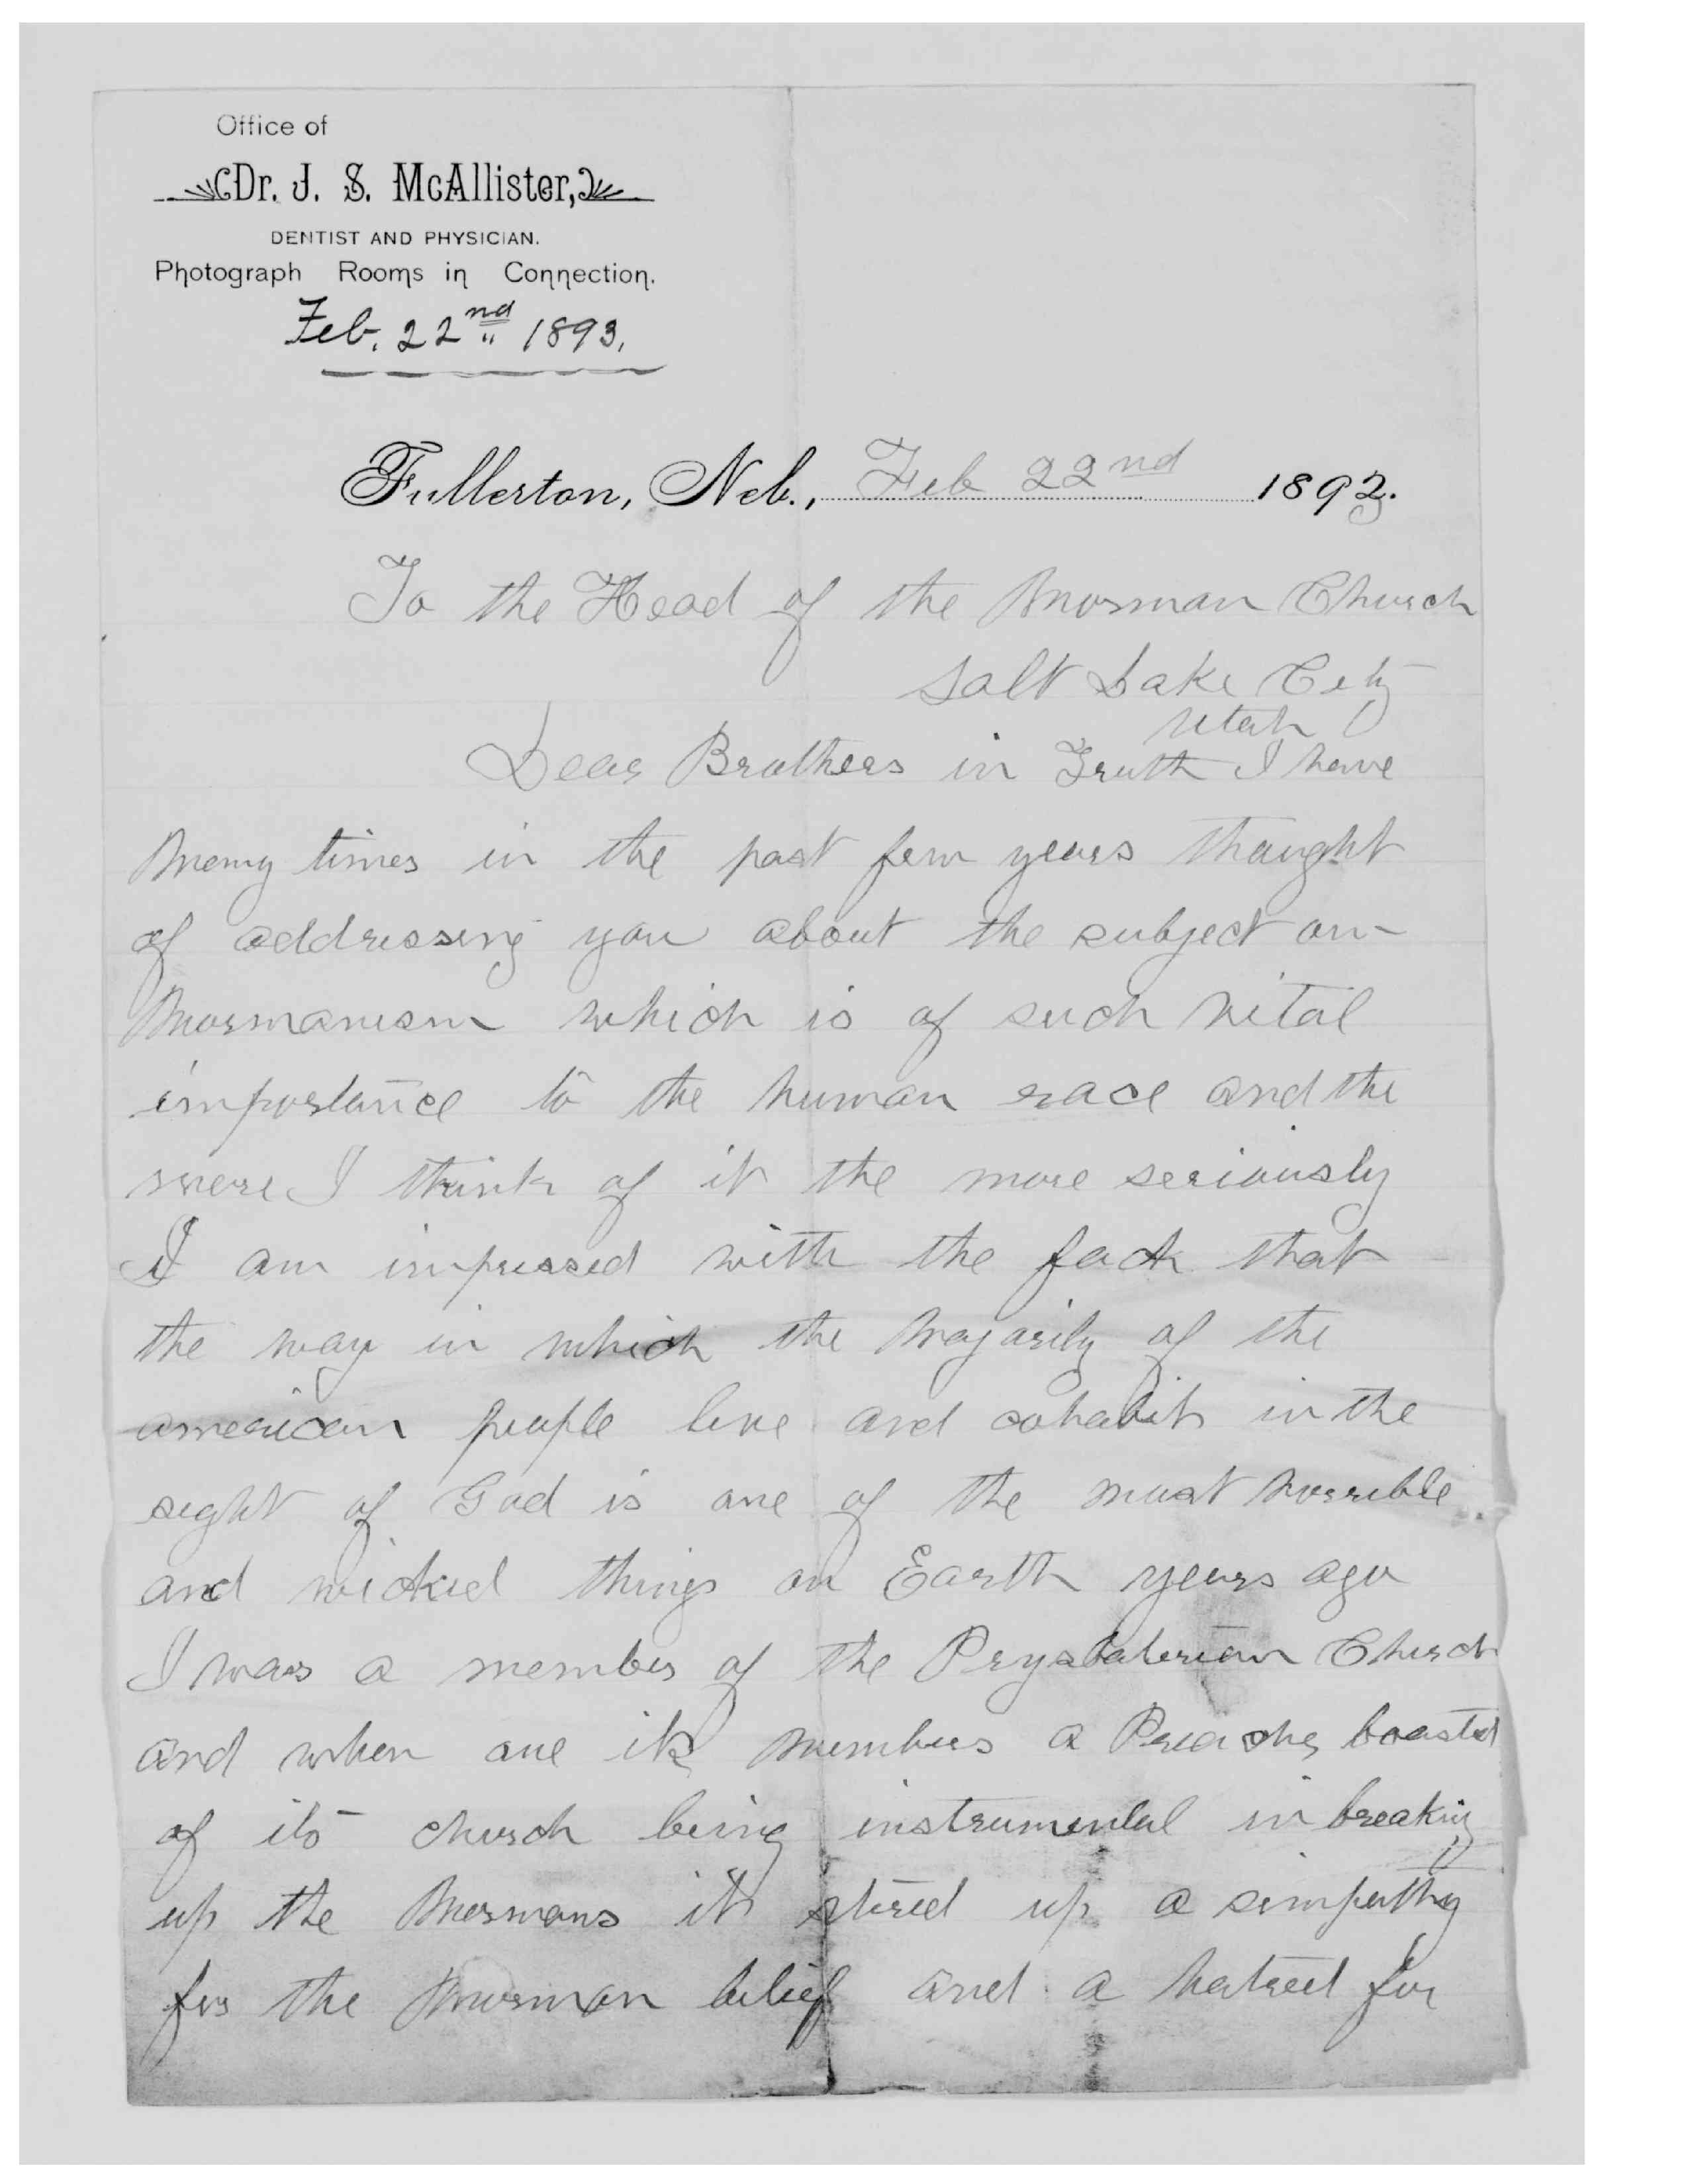 Office of
Dr. J. S. McAllister,
DENTIST AND PHYSICIAN.
Photograph Rooms in Connection.
Feb. 22nd 1893.
Fullerton, Neb., Feb 22nd 1893.
To the Head of the Morman Church
Salt Lake City
Utah
Dear Brothers in Truth I have
Many times in the past few years thought
of addressing you about the subject on
Mormanism which is of such vital
importance to the human race and the
more I think of it the more seriously
I am impressed with the fact that
the way in which the Majority of the
american people live and cohabit in the
sight of God is one of the most horrible
and wicked things on Earth years ago
I was a member of the Prysbaterian Church
and when one its members a Preacher boasted
of its church being instrumental in breaking
up the Mormans it stired up a simpathy
for the Morman belief and a hatred for